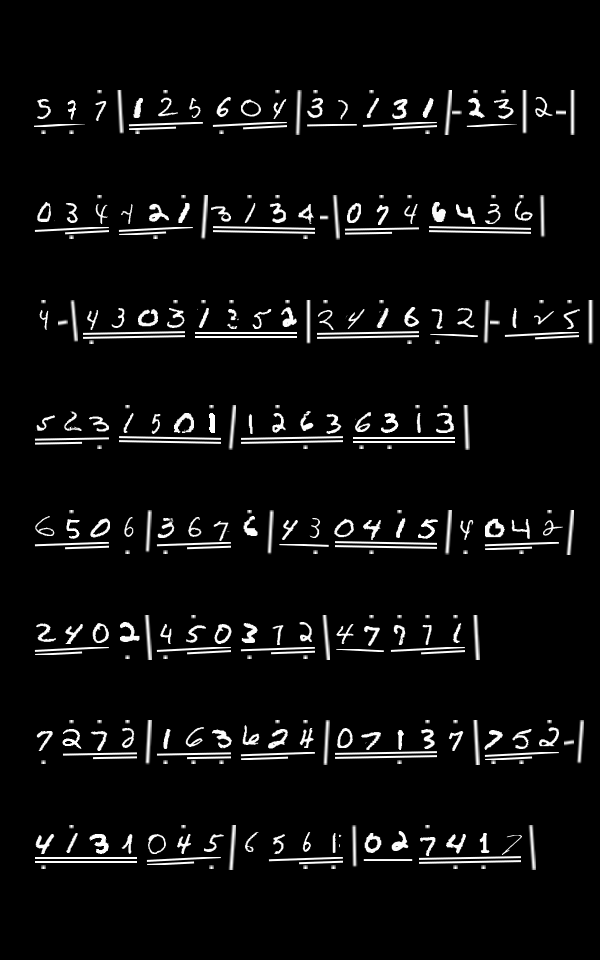 5 7 7 | 1 2 5 6 0 4 | 3 7 1 3 1 | - 2 3 | 2 - |
0 3 4 4 2 1 | 3 1 3 4 - | 0 7 4 6 4 3 6 |
4 - | 4 3 0 3 1 2 5 2 | 2 4 1 6 7 2 | - 1 2 5 |
5 2 3 1 5 0 1 | 1 2 6 3 6 3 1 3 |
6 5 0 6 | 3 6 7 6 | 4 3 0 4 1 5 | 4 0 4 2 |
2 4 0 2 | 4 5 0 3 7 2 | 4 7 7 7 1 |
7 2 7 2 | 1 6 3 6 2 4 | 0 7 1 3 7 | 7 5 2 - |
4 1 3 1 0 4 5 | 6 5 6 1 | 0 2 7 4 1 7 |